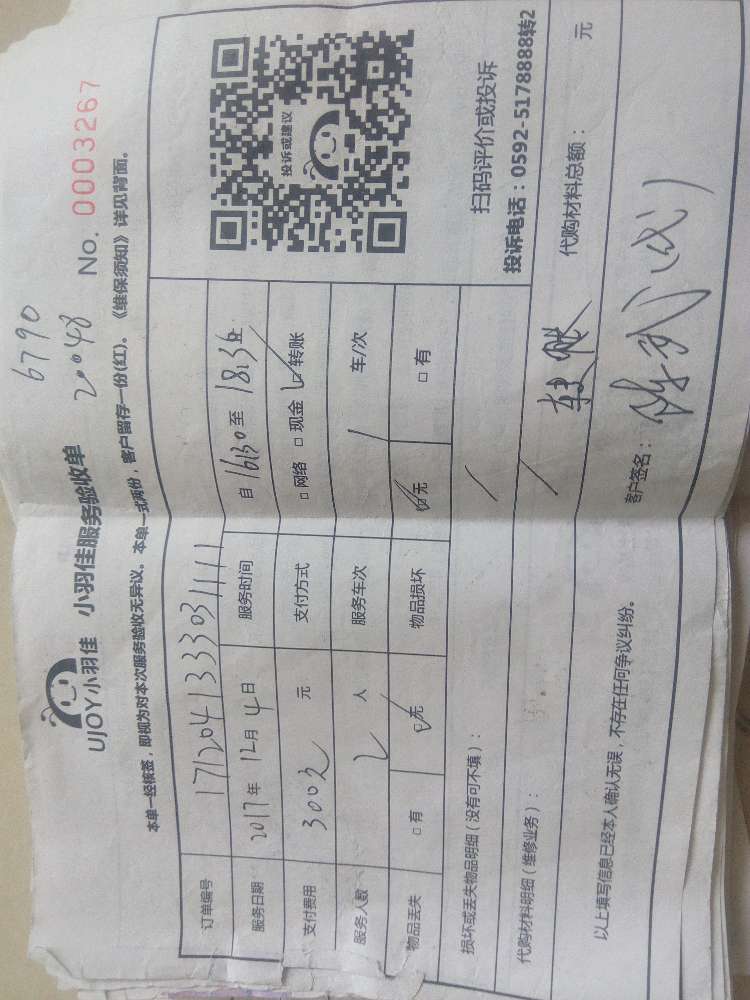 6790
20048
UJOY小羽佳 小羽佳服务验收单 No. 0003267
本单一经核签，即视为对本次服务验收无异议。本单一式两份，客户留存一份(红)。《维保须知》详见背面。
订单编号 1712041333031111
服务日期 2017年12月4日 服务时间 自16:30至18:30
支付费用 300元 元 支付方式 □网络 □现金 ☑转账
服务人数 2 人 服务车次 / 车/次
物品丢失 □有 ☑无 物品损坏 ☑无 □有
投诉或建议
扫码评价或投诉
投诉电话：0592-5178888转2
损坏或丢失物品明细（没有可不填）： /
代购材料明细（维修业务）： / 代购材料总额： 元
转账
以上填写信息已经本人确认无误，不存在任何争议纠纷。
客户签名：